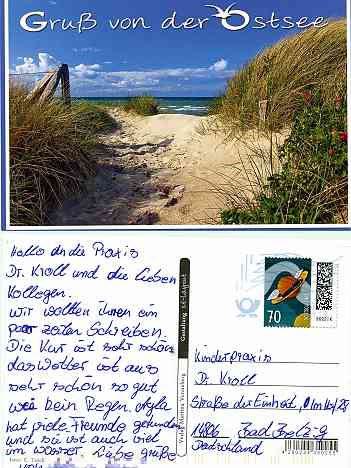 Gruß von der Ostsee
Hallo An die Praxis
Dr. Kroll und die lieben
Kollegen.
wir wollten ihnen ein
paar zeilen Schreiben.
Die Kur ist sehr schön
das Wetter ist aus
sehr schön so gut
wie kein Regen. Ayla
hat viele Freunde gefunden
und sie ist auch viel
im Wasser. Liebe grüße
von
70
Kinderpraxis
Dr. Kroll
Straße der Einheit,
14806 Bad Belzig
Deutschland